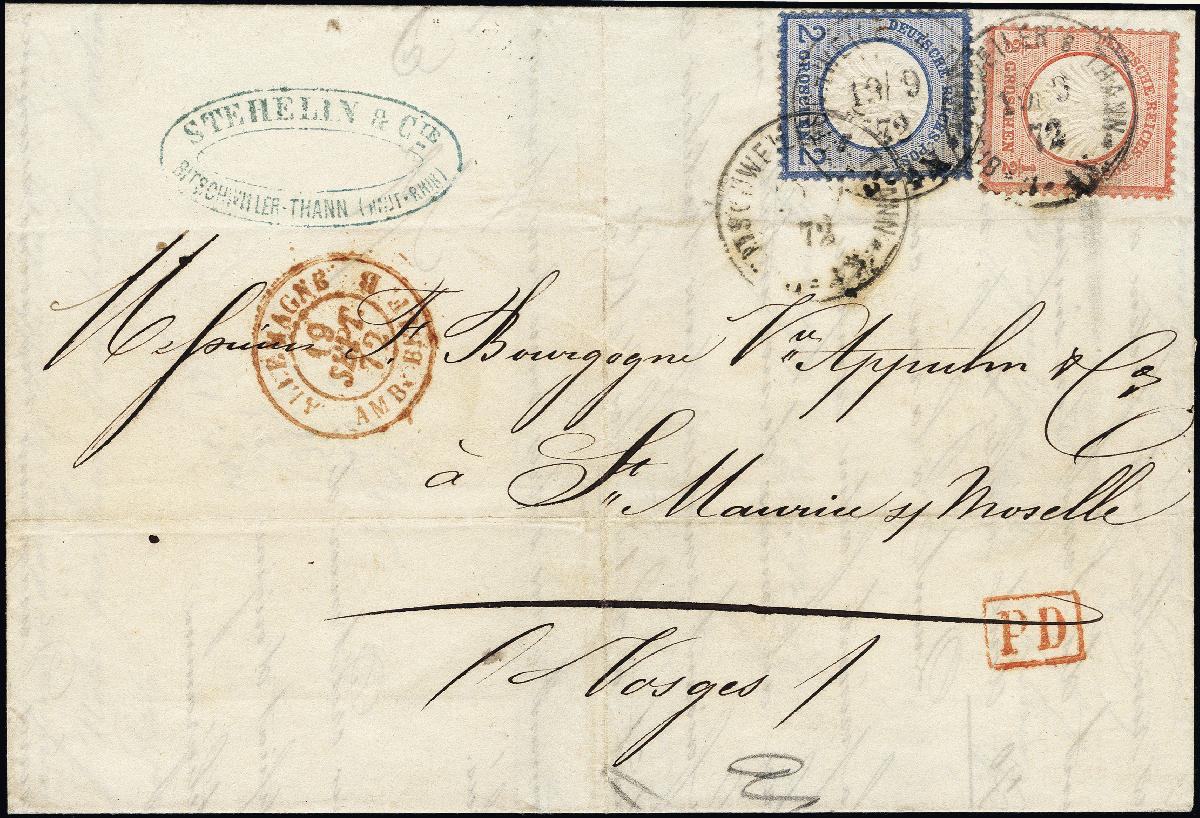 STEHELIN & CIE
BITSCHWILLER-THANN (HAUT-RHIN)
2 DEUTSCHE REICHS-POST
2 GROSCHEN 2
13/9
72
GROSCHEN
72
72
THANN
ALLEMAGNE B
19
SEPT
72
AMB.
Messieurs Ft Bourgogne Ve Appuhn & Co
à St Maurice s/ Moselle
PD
/ Vosges /